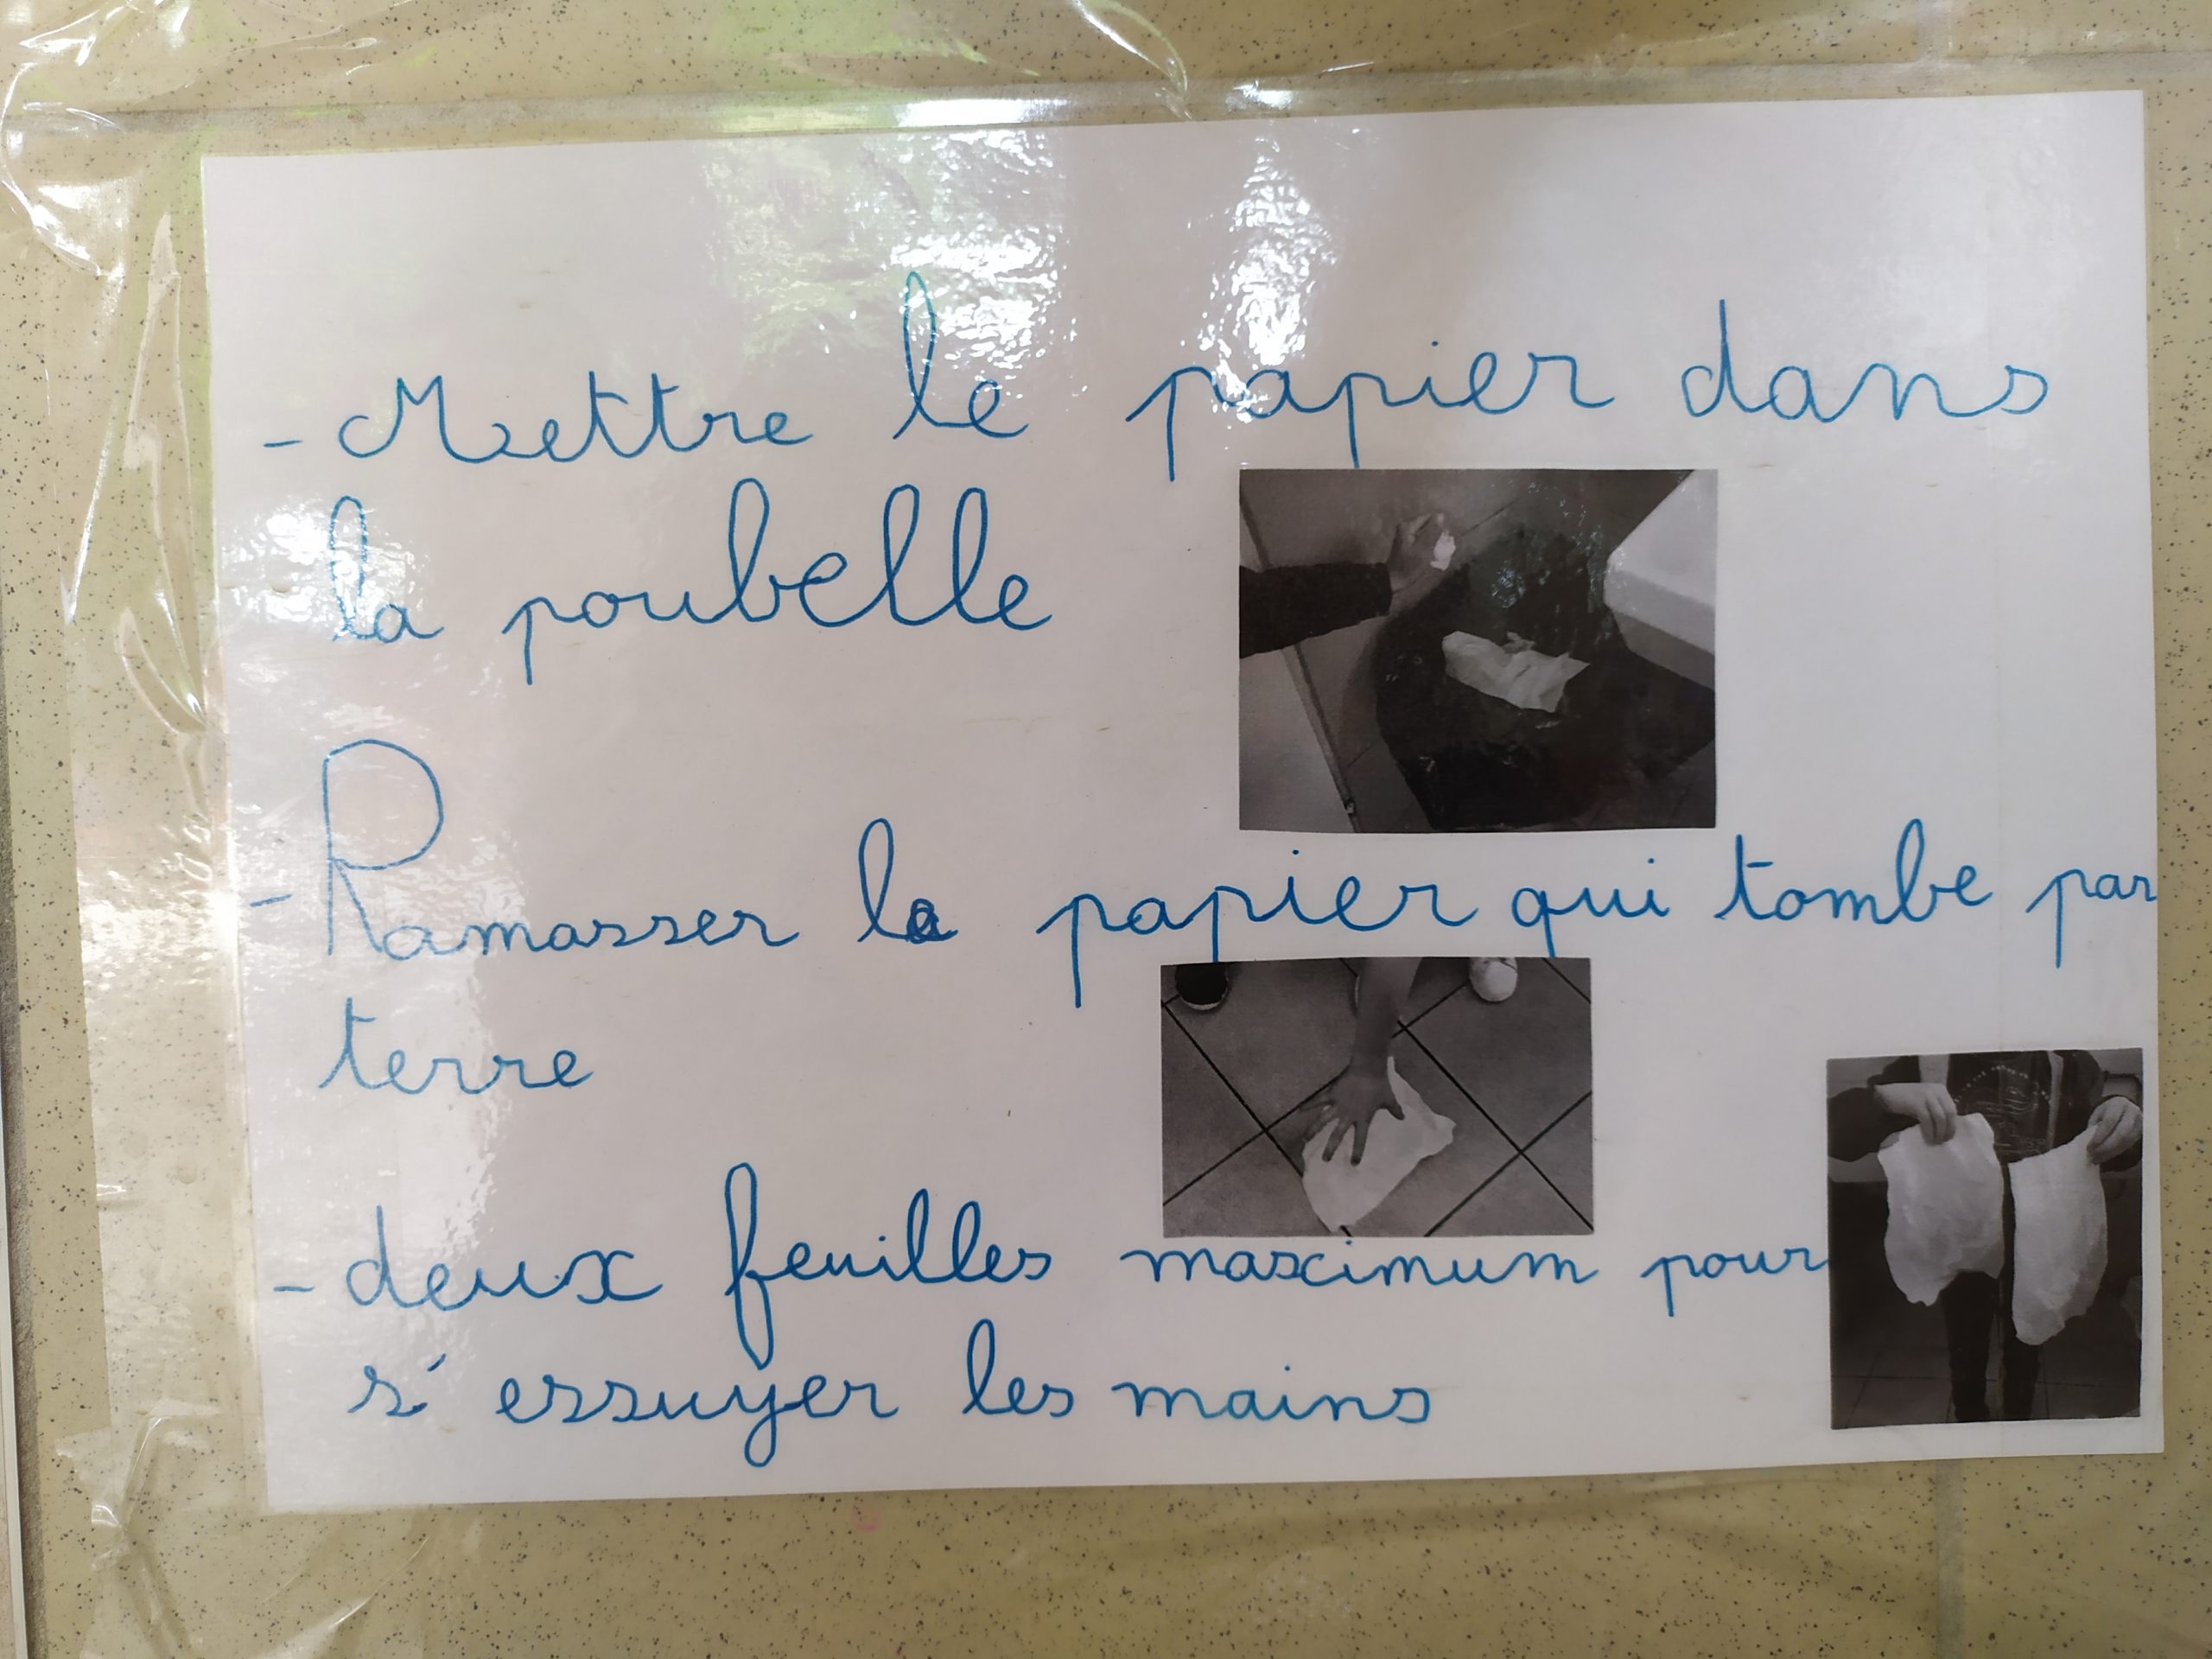 - Mettre le papier dans
la poubelle
- Ramasser le papier qui tombe par
terre
- deux feuilles maximum pour
s'essuyer les mains